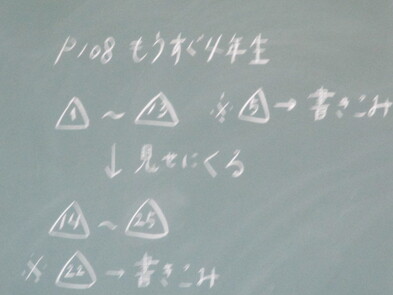 P108 もうすぐ4年生
△1 ～ △13 ※△5→書きこみ
↓見せにくる
△14 ～ △25
※△22→書きこみ